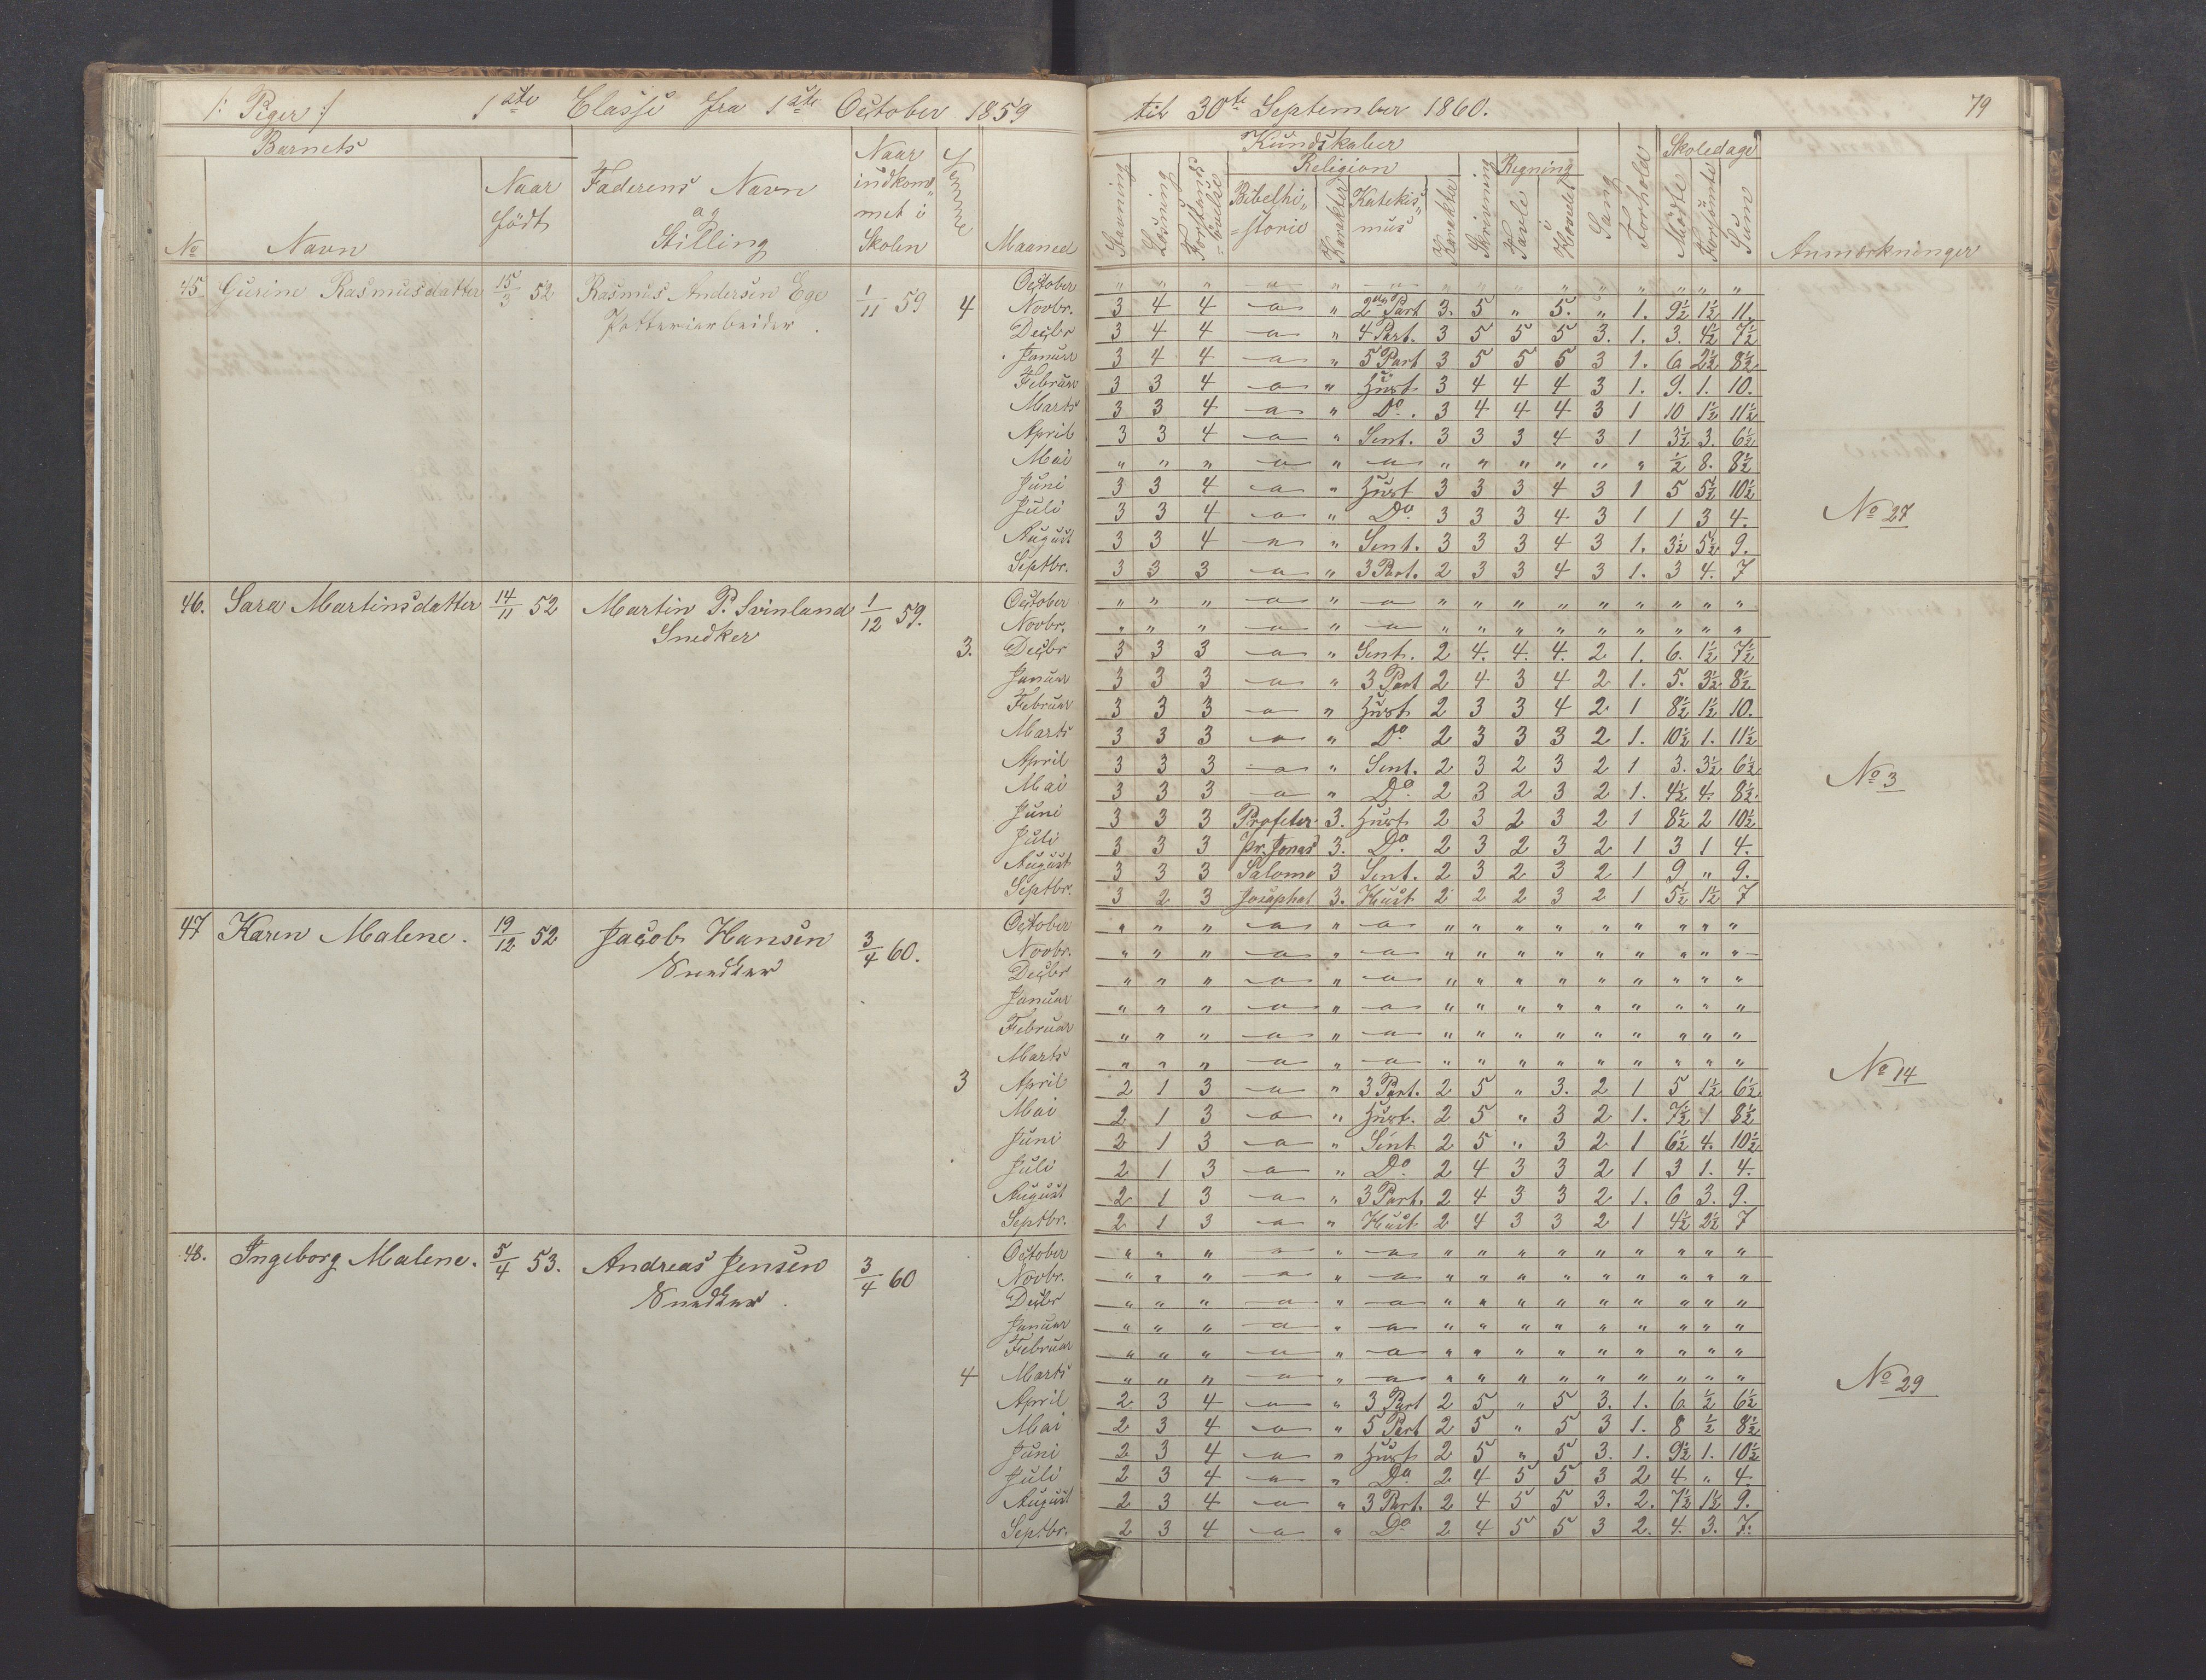 /: Piger :/ 1ste Classe fra 1ste October 1859 til 30te September 1860. 79
Barnets Faderens Navn og Stilling Naar indkommet i Skolen Kundskaber Skoledage
No Navn Naar født Maaned Stavning Læsning Religion Bibelhistorie Karakter Katekismus Karakter Skrivning Regning Tavle Hovedet Sang Forhold Mødte Forsømte Sum Anmærkninger
45. Gurine Rasmusdatter 15/3 52 Rasmus Andersen Ege 1/11 59 October " " " " " " " " " " " " " "
Potteriarbeider. 4 Novbr. 3 4 4 " 2den Part 3. 5 " 5. " 1. 9½ 1½ 11.
Decbr 3 4 4 " 4 Part. 3 5 5 5 3. 1. 3. 4½ 7½
Januar 3 4 4 " 5 Part 3 5 5 5 3 1. 6 2½ 8½
Februar 3 3 4 " Hust 3 4 4 4 3 1. 9. 1. 10.
Marts 3 3 4 " Do. 3 4 4 4 3 1 10 1½ 11½
April 3 3 4 " Sent. 3 3 3 4 3 1 3½ 3. 6½
Mai " " " " " " " " " " ½ 8. 8½
Juni 3 3 4 " Hust 3 3 3 4 3 1 5 5½ 10½
Juli 3 3 4 " Do. 3 3 3 4 3 1 1 3 4. No 27
August 3 3 4 " Sent. 3 3 3 4 3 1. 3½ 5½ 9.
Septbr. 3 3 3 " 3 Part. 2 3 3 4 3 1. 3 4. 7
46. Sara Martinsdatter 14/11 52 Martin P. Svinland 1/12 59. October " " " " " " " " " " " " "
Snedker Novbr. " " " " " " " " " " " " "
3. Decbr 3 3 3 " Sent. 2 4. 4. 4. 2 1. 6. 1½ 7½
Januar 3 3 3 " 3 Part 2 4 3 4 2 1. 5. 3½ 8½
Februar 3 3 3 " Hust 2 3 3 4 2 1 8½ 1½ 10.
Marts 3 3 3 " Do. 2 3 3 3 2 1. 10½ 1. 11½
April 3 3 3 " Sent. 2 3 2 3 2 1 3. 3½ 6½
Mai 3 3 3 " Do. 2 3 2 3 2 1. 4½ 4. 8½. No 3
Juni 3 3 3 Profeter 3. Hust 2 3 2 3 2 1 8½ 2 10½
Juli 3 3 3 Pr. Jonas 3. Do. 2 3 2 3 2 1 3 1 4.
August 3 3 3 Salomo 3 Sent. 2 3 2 3 2 1 9 " 9.
Septbr. 3 2 3 Josaphat 3. Hust 2 2 2 3 2 1 5½ 1½ 7
47 Karen Malene. 19/12 52 Jacob Hansen 3/4 60. October " " " " " " " " " " " " "
Snedker Novbr. " " " " " " " " " " " " "
Decbr " " " " " " " " " " " " "
Januar " " " " " " " " " " " " "
Februar " " " " " " " " " " " " "
Marts " " " " " " " " " " " " "
3 April 2 1 3 " 3 Part. 2 5 " 3. 2 1 5 1½ 6½ No 14
Mai 2 1 3 " Hust. 2 5 " 3 2 1. 7½ 1 8½
Juni 2 1 3 " Sent 2 5 " 3 2 1 6½ 4. 10½
Juli 2 1 3 " Do. 2 4 3 3 2 1 3 1. 4.
August 2 1 3 " 3 Part. 2 4 3 3 2 1. 6 3. 9.
Septbr. 2 1 3 " Hust 2 4 3 3 2 1 4½ 2½ 7
48. Ingeborg Malene. 5/4 53. Andreas Jensen 3/4 60 October " " " " " " " " " " " " "
Snedker. Novbr. " " " " " " " " " " " " "
Decbr " " " " " " " " " " " " "
Januar " " " " " " " " " " " " "
Februar " " " " " " " " " " " " "
4 Marts " " " " " " " " " " " " " No 29
April 2 3 4 " 3 Part 2 5 " 5 3. 1. 6 ½ 6½
Mai 2 3 4 " 5 Part 2 5 " 5 3 1. 8 ½ 8½
Juni 2 3 4 " Hust 2 5 " 5 3. 1. 9½ 1. 10½
Juli 2 3 4 " Do 2 4 5 5 3 2 4 " 4
August 2 3 4 " 3 Part. 2 4 5 5 3. 2. 7½ 1½ 9.
Septbr. 2 3 4 " Do 2 4 5 5 3 2. 4. 3. 7.